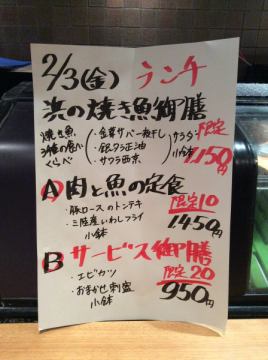 2/3(金) ランチ
浜の焼き魚御膳
焼き魚
3種の食べ
くらべ
・金華サバ一夜干し
・銀ダラ正油
サワラ西京
サラダ
小鉢
限定
1150円
A 肉と魚の定食
・豚ロースのトンテキ
・三陸産いわしフライ
小鉢
限定10
1450円
B サービス御膳
・エビカツ
・おまかせ刺盛
小鉢
限定20
950円